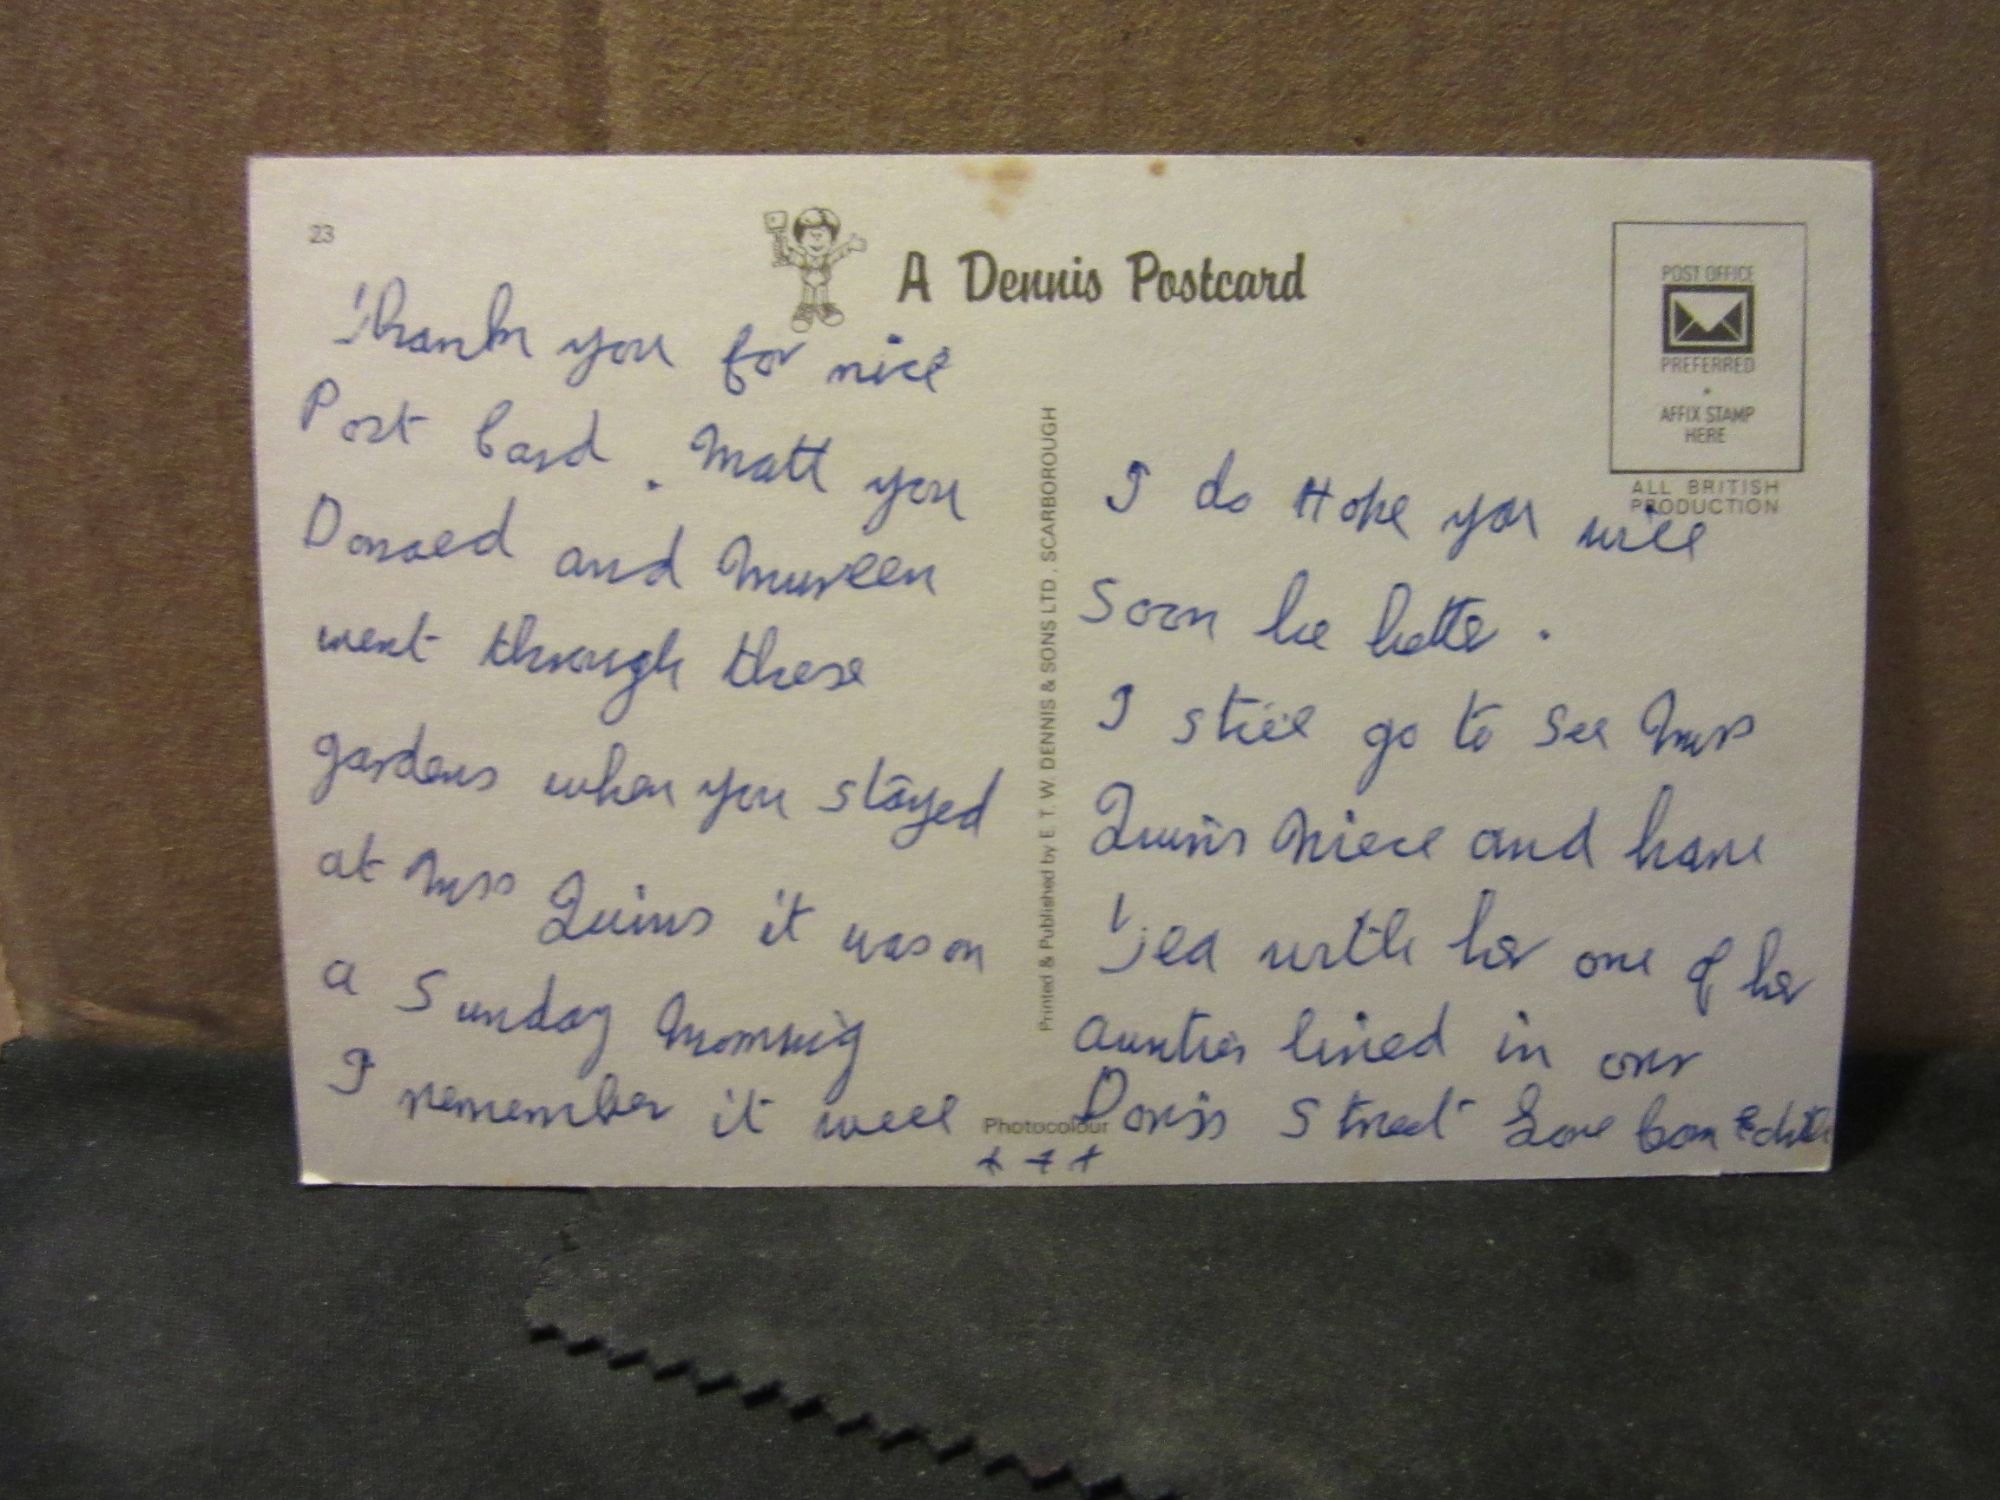 23
A Dennis Postcard
POST OFFICE
PREFERRED
AFFIX STAMP
HERE
ALL BRITISH
PRODUCTION
Thank you for nice
Post Card. Matt you
Donald and Mureen
went through these
gardens when you stayed
at Miss Quins it was on
a Sunday Morning
I remember it well
+ + +
Printed & Published by E. T. W. DENNIS & SONS LTD., SCARBOROUGH
Photocolour
I do Hope you will
Soon be better.
I still go to see Miss
Quins Niece and have
Tea with her one of her
aunties lived in our
Street Love Edith